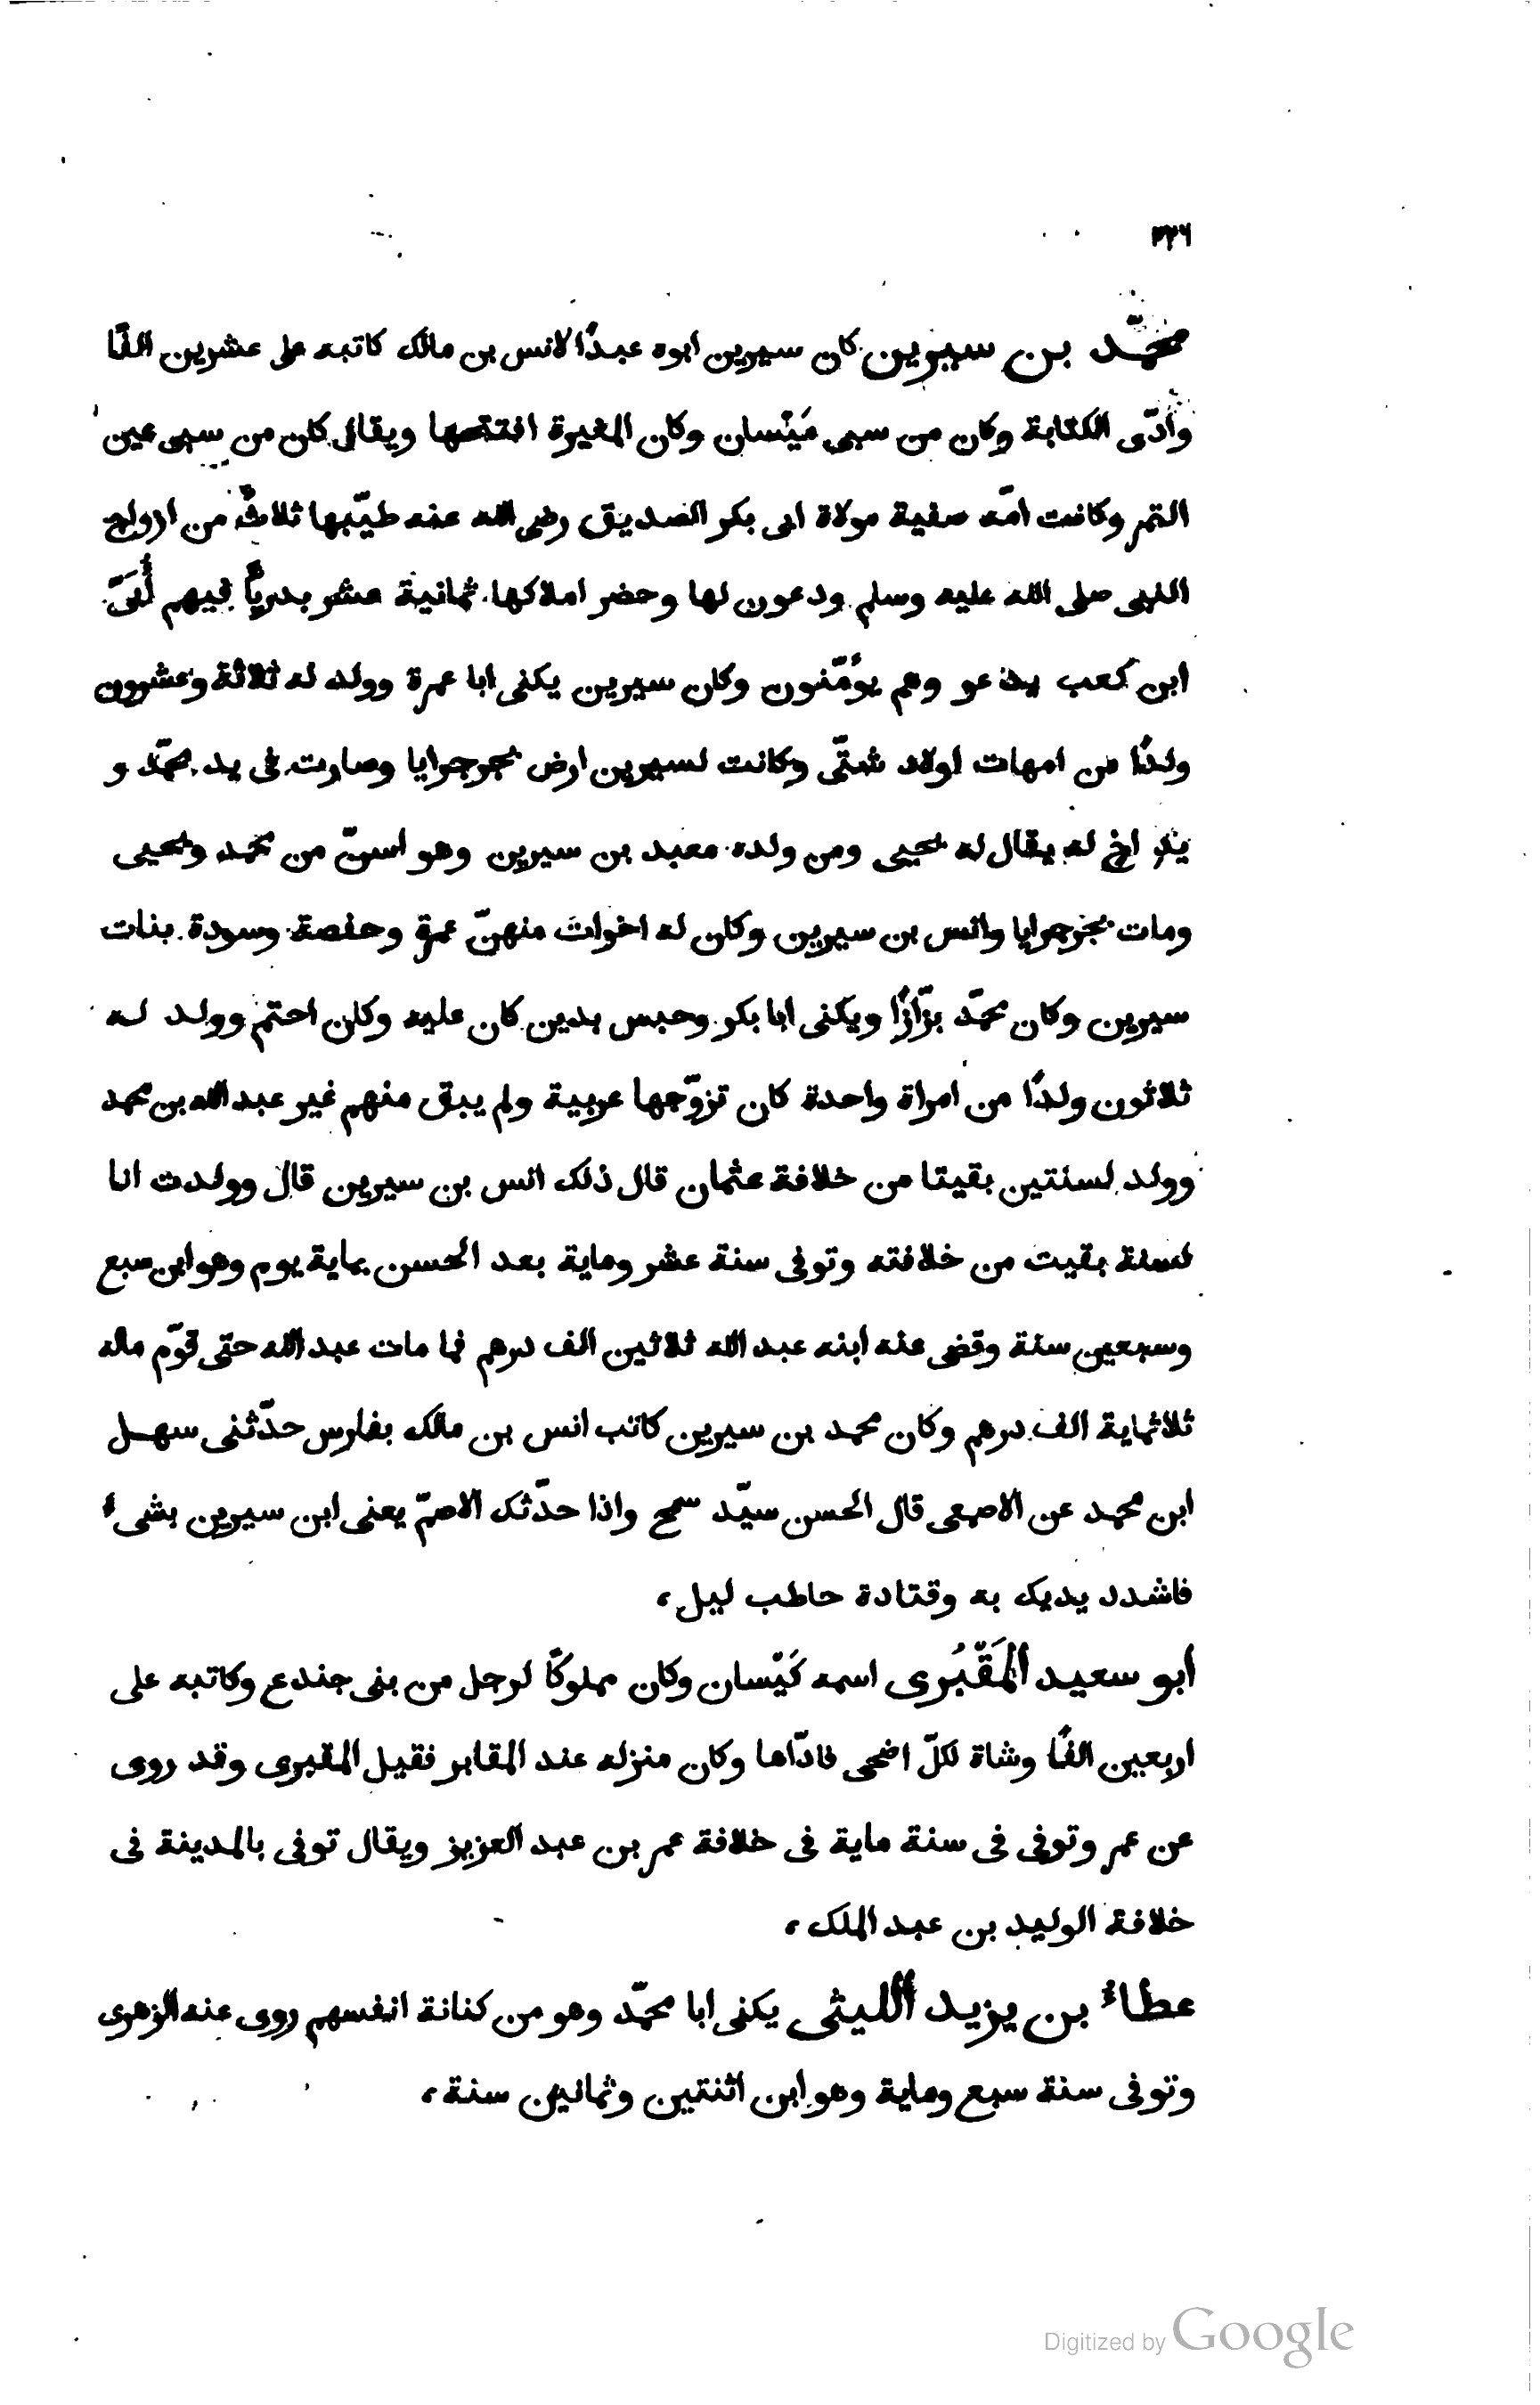 ٢٢٦
محمّد بن سيرين كان سيرين ابوه عبدًا لانس بن مالك كاتبه على عشرين الفًا
وادّى الكتابة وكان من سبى مَيْسان وكان المغيرة افتتحها ويقال كان من سبى عين
التمر وكانت امّه صفية مولاة ابى بكر الصديق رضى الله عنه طيّبها ثلاثٌ من ازواج
النبى صلى الله عليه وسلم ودعون لها وحضر املاكها ثمانية عشر بدريًّا فيهم أُبَىّ
ابن كعب يدعو وهم يؤمّنون وكان سيرين يكنى ابا عمرة وولد له ثلاثة وعشرون
ولدًا من امهات اولاد شتّى وكانت لسيرين ارض بجرجرايا وصارت فى يد محمّد و
يد اخ له يقال له يحيى ومن ولده معبد بن سيرين وهو اسنّ من محمد ويحيى
ومات بجرجرايا وانس بن سيرين وكان له اخوات منهنّ عمرة وحفصة وسودة بنات
سيرين وكان محمّد بزّازًا ويكنى ابا بكر وحبس بدين كان عليه وكان احتم وولد له
ثلاثون ولدًا من امراة واحدة كان تزوّجها عربية ولم يبق منهم غير عبد الله بن محمد
وولد لسنتين بقيتا من خلافة عثمان قال ذلك انس بن سيرين قال وولدت انا
لسنة بقيت من خلافته وتوفى سنة عشر وماية بعد الحسن بماية يوم وهو ابن سبع
وسبعين سنة وقضى عنه ابنه عبد الله ثلاثين الف درهم فما مات عبد الله حتى قوّم ماله
ثلاثماية الف درهم وكان محمد بن سيرين كاتب انس بن مالك بفارس حدّثنى سهل
ابن محمد عن الاصمعى قال الحسن سيّد سمح واذا حدّثك الاصمّ يعنى ابن سيرين بشىء
فاشدد يديك به وقتادة حاطب ليل،
ابو سعيد المَقْبُرى اسمه كَيْسان وكان مملوكًا لرجل من بنى جندع وكاتبه على
اربعين الفًا وشاة لكلّ اضحى فادّاها وكان منزله عند المقابر فقيل المقبرى وقد روى
عن عمر وتوفى فى سنة ماية فى خلافة عمر بن عبد العزيز ويقال توفى بالمدينة فى
خلافة الوليد بن عبد الملك،
عطاءُ بن يزيد الليثى يكنى ابا محمّد وهو من كنانة انفسهم روى عنه الزهرى
وتوفى سنة سبع وماية وهو ابن اثنتين وثمانين سنة،
Digitized by Google